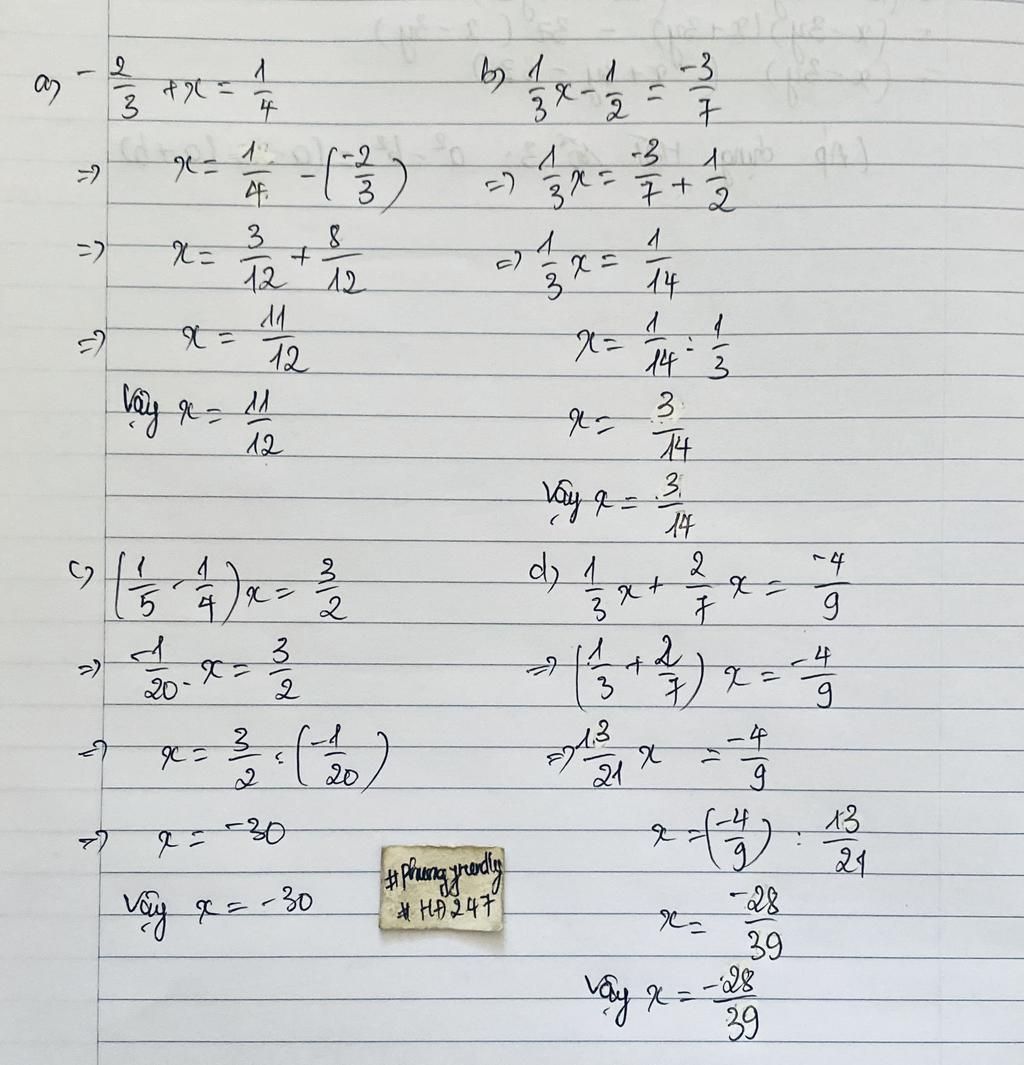 a) -2/3 + x = 1/4
=> x = 1/4 - (-2/3)
=> x = 3/12 + 8/12
=> x = 11/12
Vậy x = 11/12
b) 1/3 x - 1/2 = -3/7
=> 1/3 x = -3/7 + 1/2
=> 1/3 x = 1/14
x = 1/14 : 1/3
x = 3/14
Vậy x = 3/14
c) (1/5 - 1/4) x = 3/2
=> -1/20 . x = 3/2
=> x = 3/2 : (-1/20)
=> x = -30
Vậy x = -30
#HA247
d) 1/3 x + 2/7 x = -4/9
=> (1/3 + 2/7) x = -4/9
=> 13/21 x = -4/9
x = (-4/9) : 13/21
x = -28/39
Vậy x = -28/39